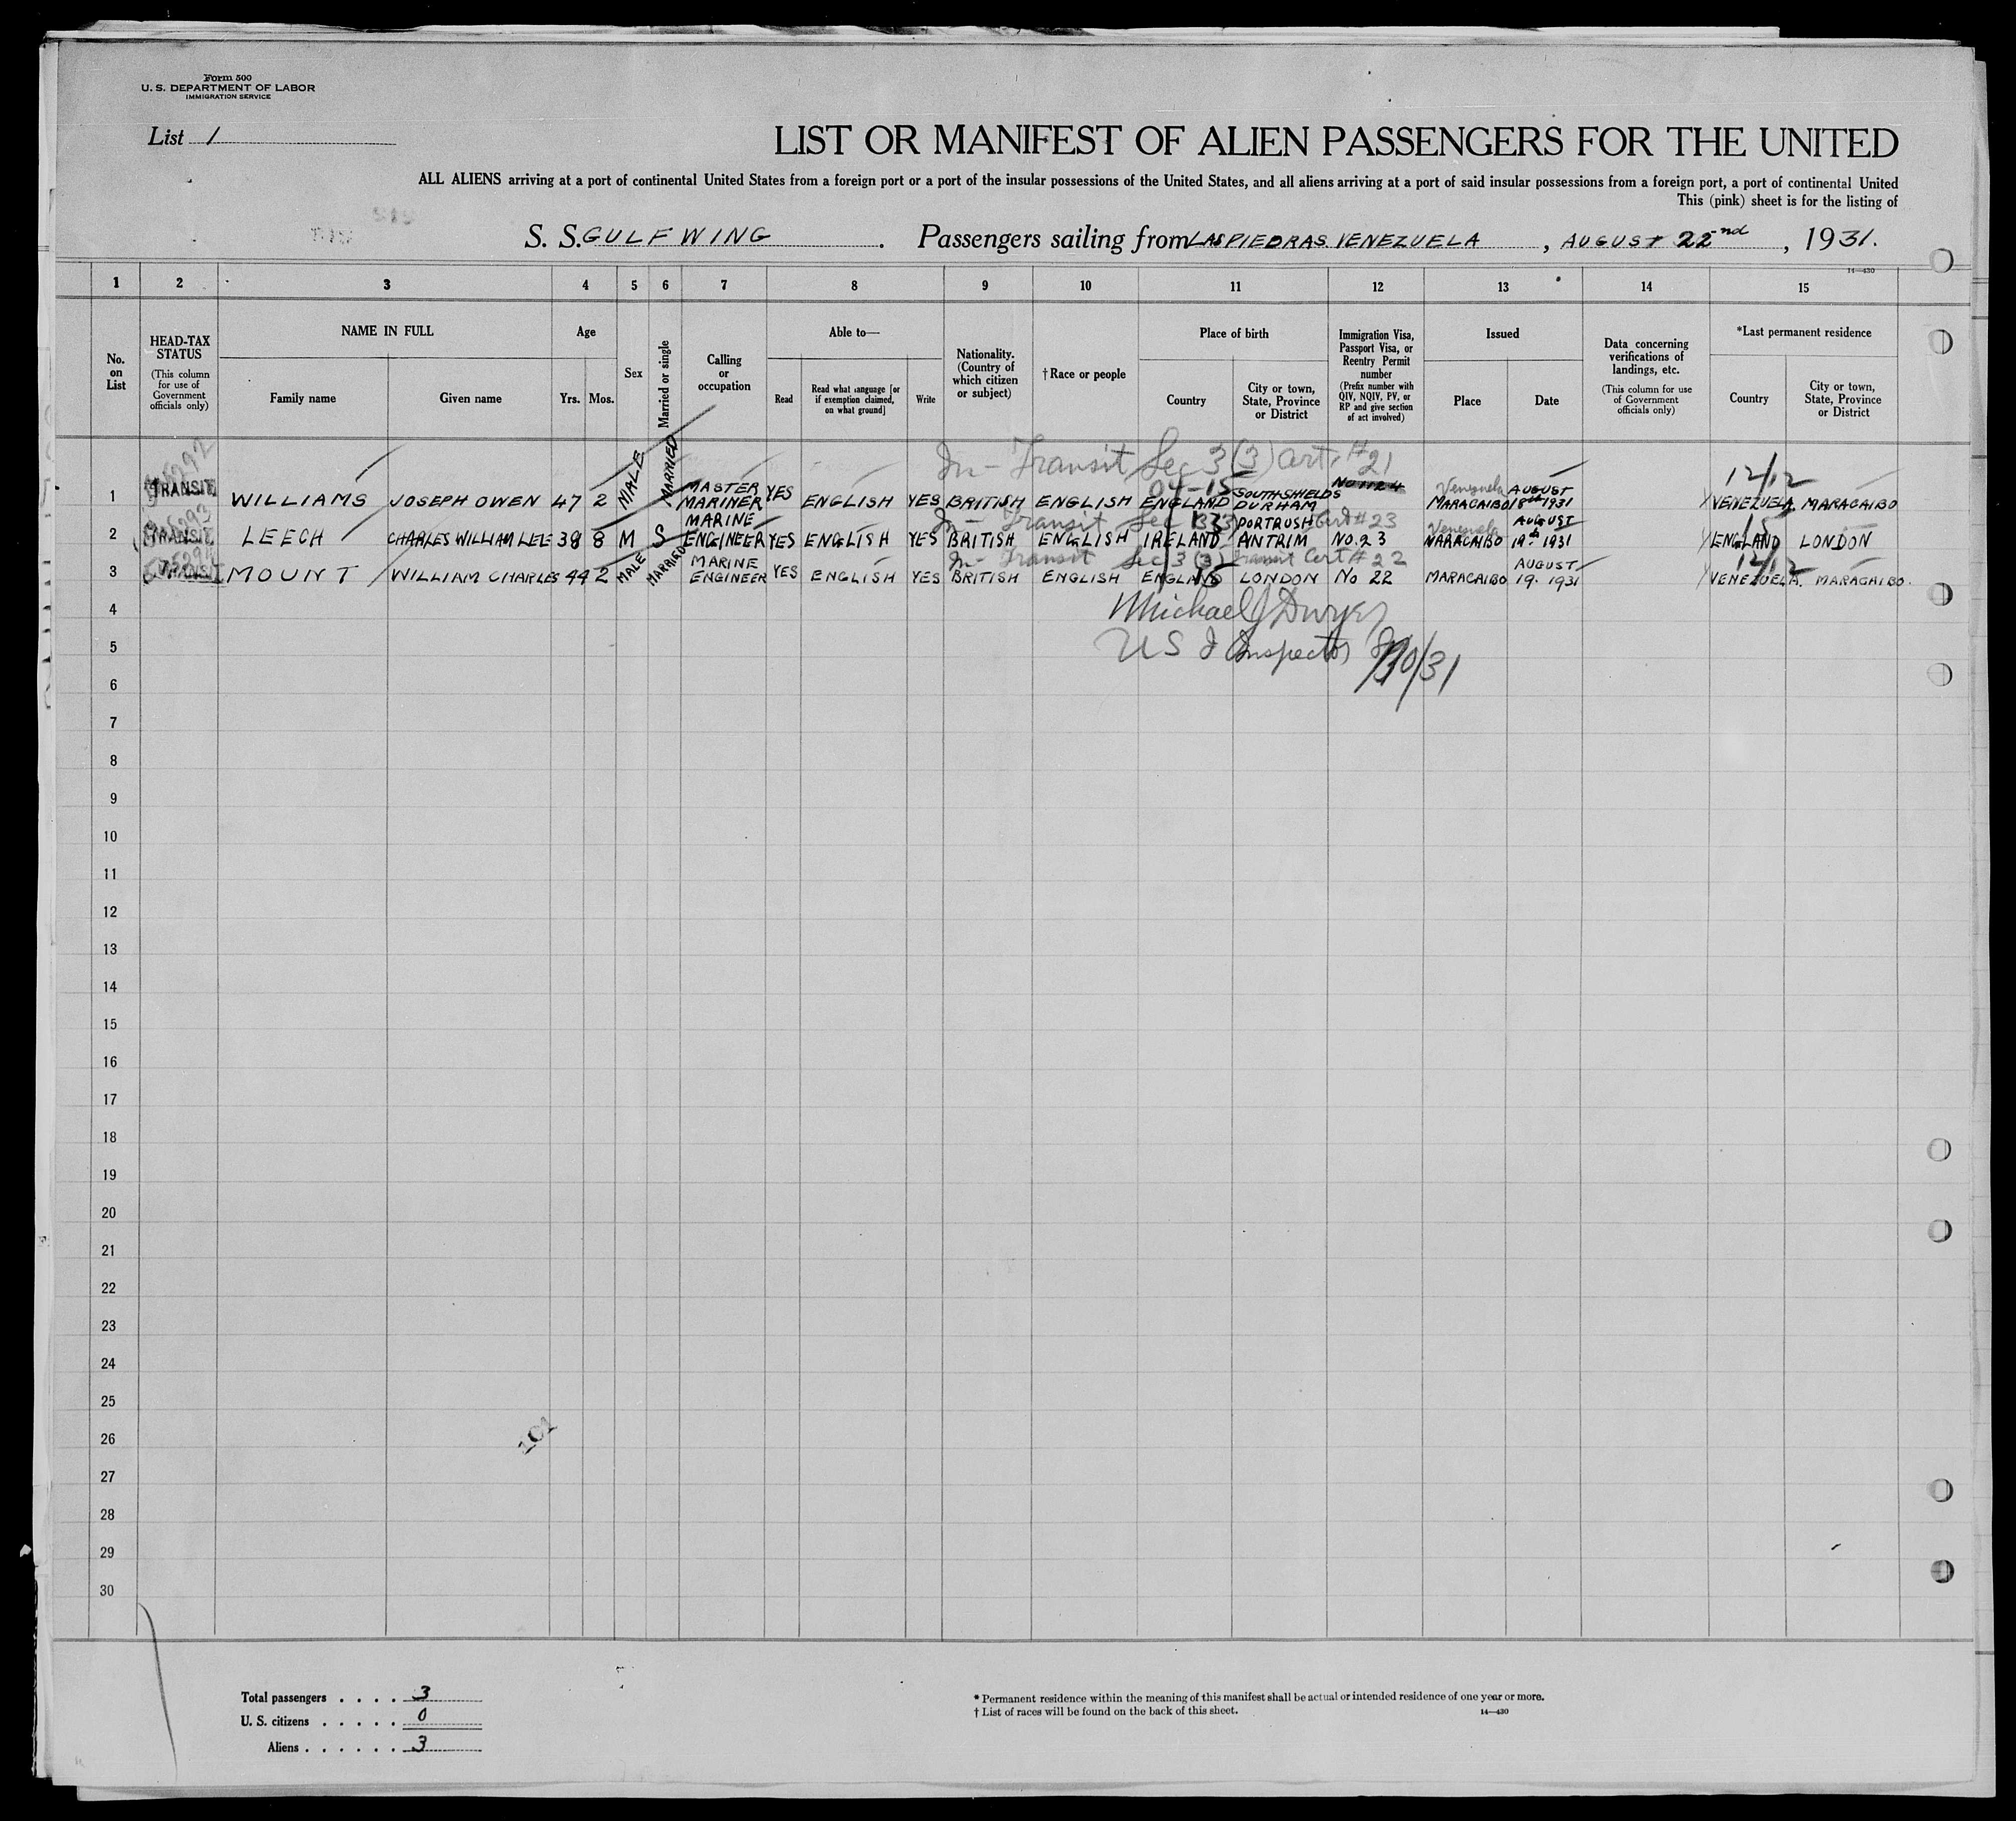 Form 500
U. S. DEPARTMENT OF LABOR
IMMIGRATION SERVICE
List 1
LIST OR MANIFEST OF ALIEN PASSENGERS FOR THE UNITED
ALL ALIENS arriving at a port of continental United States from a foreign port or a port of the insular possessions of the United States, and all aliens arriving at a port of said insular possessions from a foreign port, a port of continental United
This (pink) sheet is for the listing of
S. S. GULFWING. Passengers sailing from LAS PIEDRAS VENEZUELA, AUGUST 22nd, 1931.
14—430
1 2 3 4 5 6 7 8 9 10 11 12 13 14 15
No. on List
HEAD-TAX STATUS (This column for use of Government officials only)
NAME IN FULL
Family name Given name
Age
Yrs. Mos.
Sex
Married or single
Calling or occupation
Able to—
Read Read what language [or if exemption claimed, on what ground] Write
Nationality. (Country of which citizen or subject)
†Race or people
Place of birth
Country City or town, State, Province or District
Immigration Visa, Passport Visa, or Reentry Permit number (Prefix number with QIV, NQIV, PV, or RP and give section of act involved)
Issued
Place Date
Data concerning verifications of landings, etc. (This column for use of Government officials only)
*Last permanent residence
Country City or town, State, Province or District
In - Transit Sec 3 (3) Cert. #21
04-15 12/12
1 TRANSIT WILLIAMS JOSEPH OWEN 47 2 MALE MARRIED MASTER MARINER YES ENGLISH YES BRITISH ENGLISH ENGLAND SOUTH SHIELDS DURHAM Venezuela MARACAIBO AUGUST 18th 1931 VENEZUELA MARACAIBO
In - Transit Sec 3(3) Cert #23
15
2 TRANSIT LEECH CHARLES WILLIAM LEE 38 8 M S MARINE ENGINEER YES ENGLISH YES BRITISH ENGLISH IRELAND PORTRUSH ANTRIM No. 23 Venezuela MARACAIBO AUGUST 19th 1931 ENGLAND LONDON
In - Transit Sec 3 (3) Transit Cert #22
15 12/12
3 TRANSIT MOUNT WILLIAM CHARLES 44 2 MALE MARRIED MARINE ENGINEER YES ENGLISH YES BRITISH ENGLISH ENGLAND LONDON No 22 MARACAIBO AUGUST 19. 1931 VENEZUELA. MARACAIBO.
4 Michael J Dwyer
5 U S I Inspector
6
7
8
9
10
11
12
13
14
15
16
17
18
19
20
21
22
23
24
25
26
27
28
29
30
101
Total passengers . . . . 3
U. S. citizens . . . . . 0
Aliens . . . . . . 3
* Permanent residence within the meaning of this manifest shall be actual or intended residence of one year or more.
† List of races will be found on the back of this sheet.
14—430